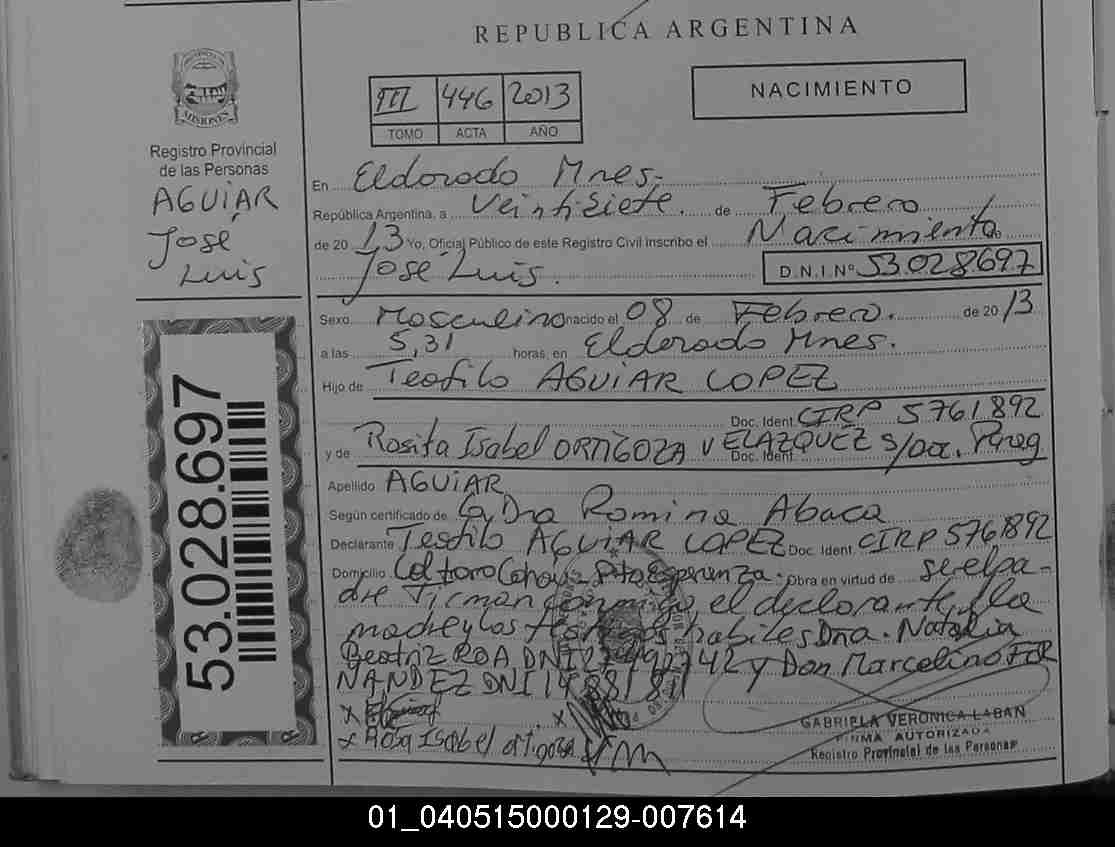 REPUBLICA ARGENTINA
MISIONES
Registro Provincial
de las Personas
AGUiAR
José
Luis
53.028.697
III 446 2013
TOMO ACTA AÑO
NACIMIENTO
En Eldorado Mnes.
República Argentina, a Veintisiete de Febrero
de 2013 Yo, Oficial Público de este Registro Civil inscribo el Nacimiento
José Luis. D.N.I Nº 53.028697
Sexo Masculino nacido el 08 de Febrero. de 2013
a las 5,31 horas, en Eldorado Mnes.
Hijo de Teofilo AGUiAR LOPEZ
Doc. Ident. CIRP 5761892
y de Rosita Isabel ORTIGOZA VELAZQUEZ S/Doc. Parag
Doc. Ident.
Apellido AGUiAR
Según certificado de La Dra Romina Abaca
Declarante Teofilo AGUiAR LOPEZ Doc. Ident. CIRP 5761892
Domicilio Esperanza. Obra en virtud de ser el pa-
dre Firman conmigo el declarante, la
madre y los testigos habiles Dña. Natalia
Beatriz ROA DNI 27492742 y Don Marcelino FER
NANDEZ DNI
x
x Rosa Isabel ortigoza
GABRIELA VERONICA LABAN
FIRMA AUTORIZADA
Registro Provincial de las Personas
01_040515000129-007614